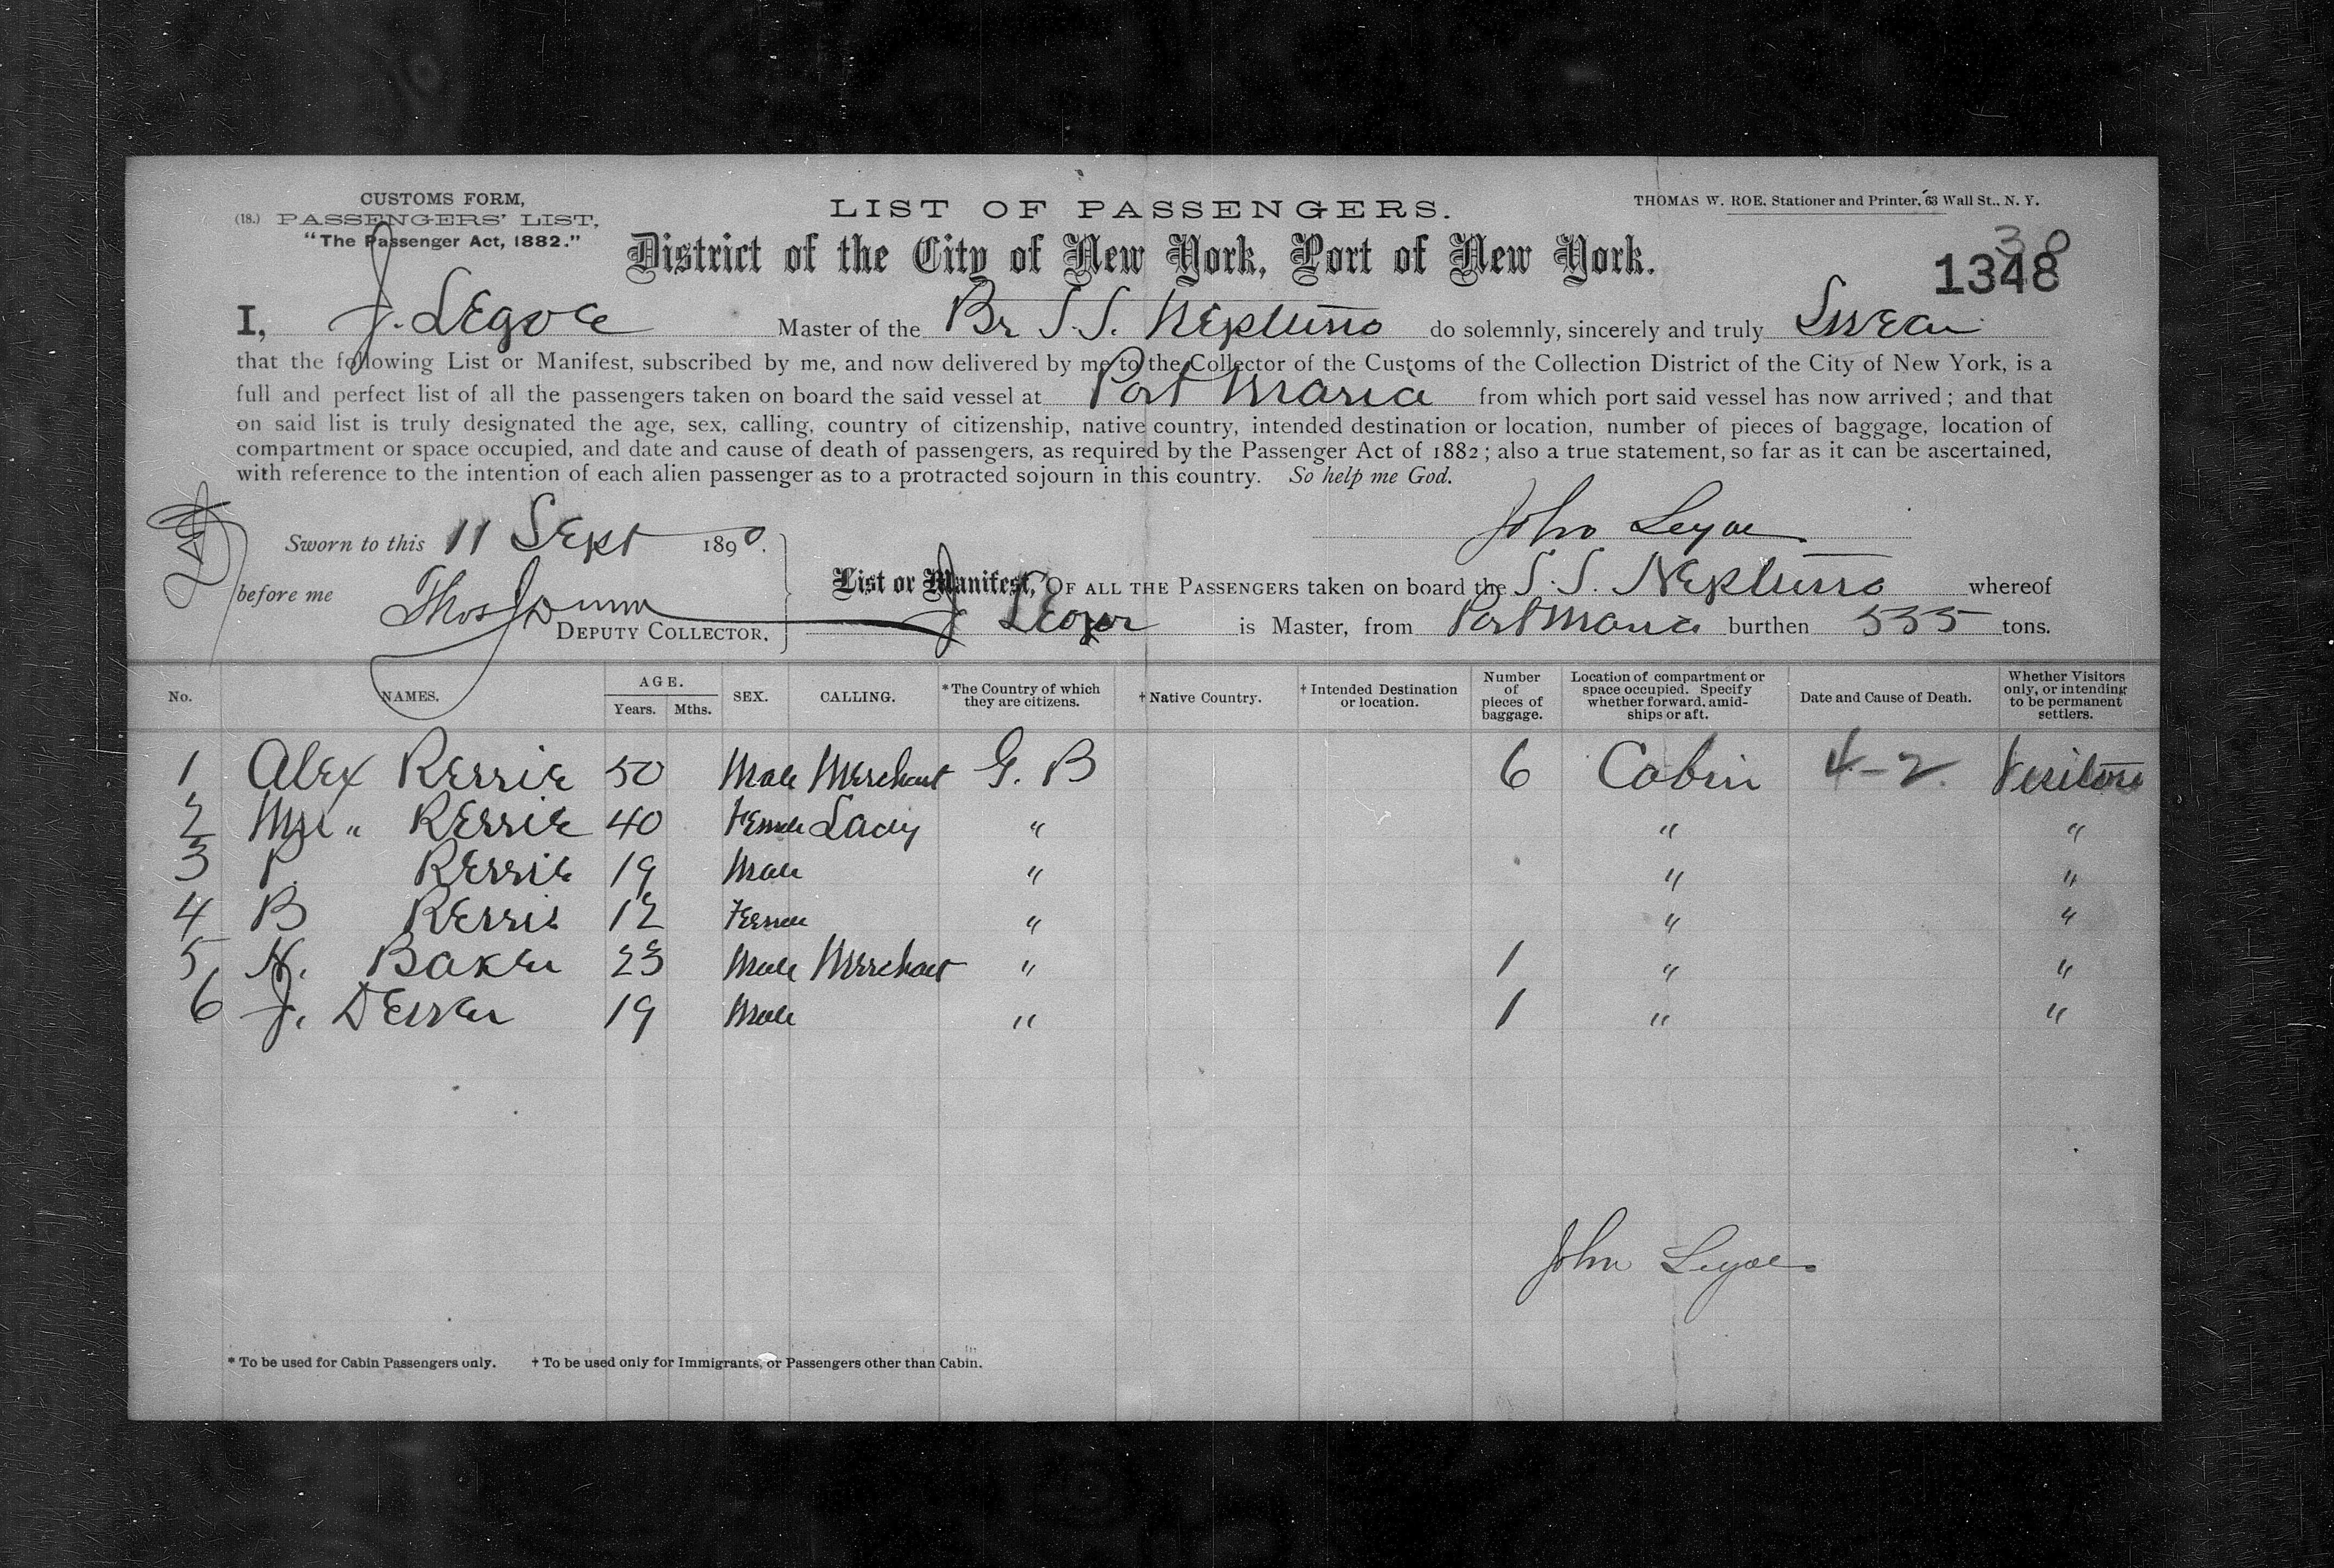 CUSTOMS FORM,
(18.) PASSENGERS' LIST,
"The Passenger Act, 1882."
LIST OF PASSENGERS.
THOMAS W. ROE, Stationer and Printer, 63 Wall St., N. Y.
District of the City of New York, Port of New York.
30
1348
I, J. Master of the Br S.S. Neptuno do solemnly, sincerely and truly Swear
that the following List or Manifest, subscribed by me, and now delivered by me to the Collector of the Customs of the Collection District of the City of New York, is a
full and perfect list of all the passengers taken on board the said vessel at Port Maria from which port said vessel has now arrived; and that
on said list is truly designated the age, sex, calling, country of citizenship, native country, intended destination or location, number of pieces of baggage, location of
compartment or space occupied, and date and cause of death of passengers, as required by the Passenger Act of 1882; also a true statement, so far as it can be ascertained,
with reference to the intention of each alien passenger as to a protracted sojourn in this country. So help me God.
John
Sworn to this 11 Sept 1890.
before me Thos Dunn
DEPUTY COLLECTOR.
List or Manifest, OF ALL THE PASSENGERS taken on board the S.S. Neptuno whereof
J is Master, from Port Maria burthen 535 tons.
No. NAMES. AGE. Years. Mths. SEX. CALLING. *The Country of which they are citizens. †Native Country. †Intended Destination or location. Number of pieces of baggage. Location of compartment or space occupied. Specify whether forward, amid-ships or aft. Date and Cause of Death. Whether Visitors only, or intending to be permanent settlers.
1 Alex Rerrie 50 Male Merchant G. B 6 Cabin 4-2 Visitors
2 Mrs " Rerrie 40 Female Lady " " "
3 P. Rerrie 19 Male " " "
4 B Rerrie 12 Female " " "
5 N. Baker 23 Male Merchant " 1 " "
6 J. 19 Male " 1 " "
John
* To be used for Cabin Passengers only. † To be used only for Immigrants, or Passengers other than Cabin.